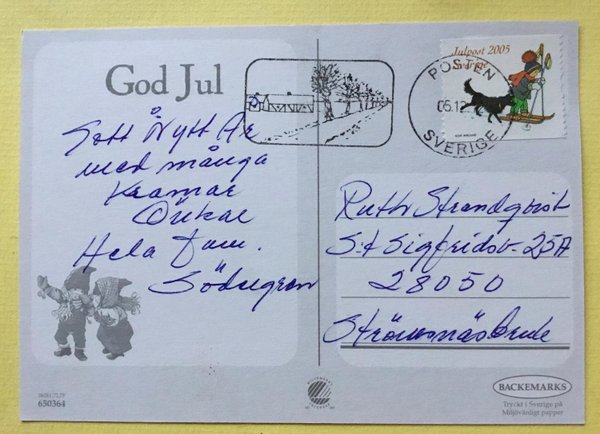 God Jul
Gott Nytt År
med många
Kramar
Önskar
Hela Fam.
Södergren
Julpost 2005
Sverige
POSTEN
05.12
SVERIGE
Ruth Strandqvist
S:t Sigfridsv. 25A
28050
Strömsnäsbruk
650364
BACKEMARKS
Tryckt i Sverige på
Miljövänligt papper